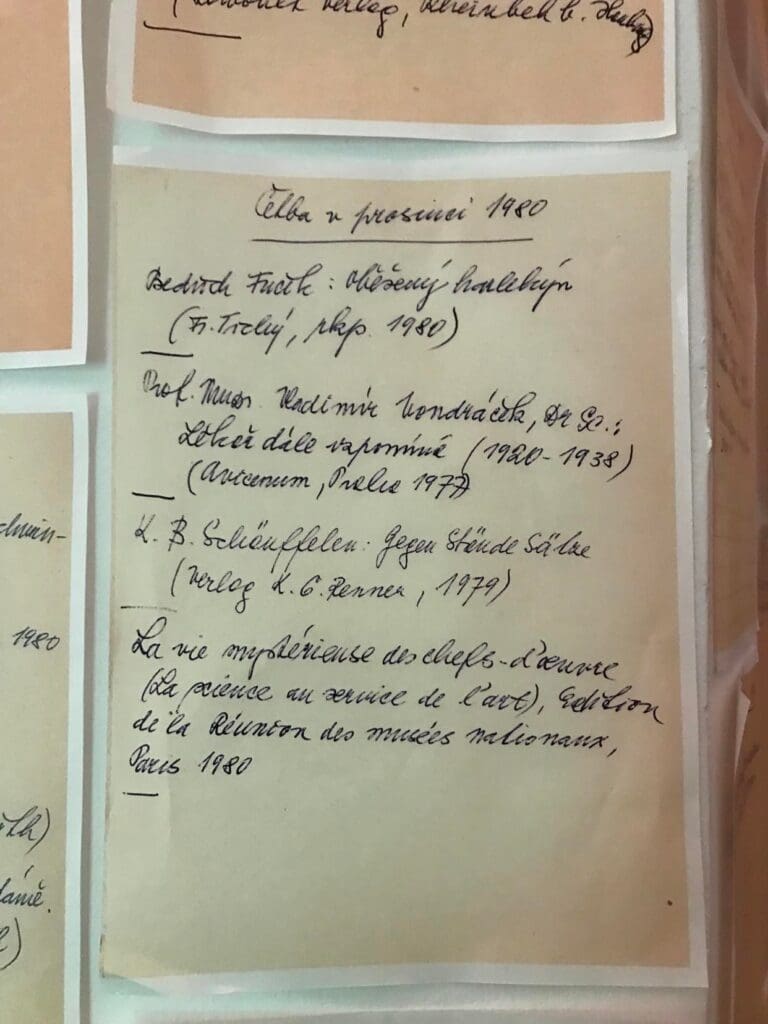 Verlag,
Četba v prosinci 1980
Bedřich Fučík: Oběšený harlekýn
(Fr. Tichý, rkp. 1980)
Prof. Mudr. Vladimír Vondráček, Dr Sc.:
Lékař dále vzpomíná (1920-1938)
(Avicenum, Praha 1977)
K. B. Schäuffelen: Gegen Stände Sätze
(Verlag K. G. Renner, 1979)
La vie mystérieuse des chefs-d'œuvre
(La science au service de l'art), Edition
de la Réunion des musées nationaux,
Paris 1980
1980